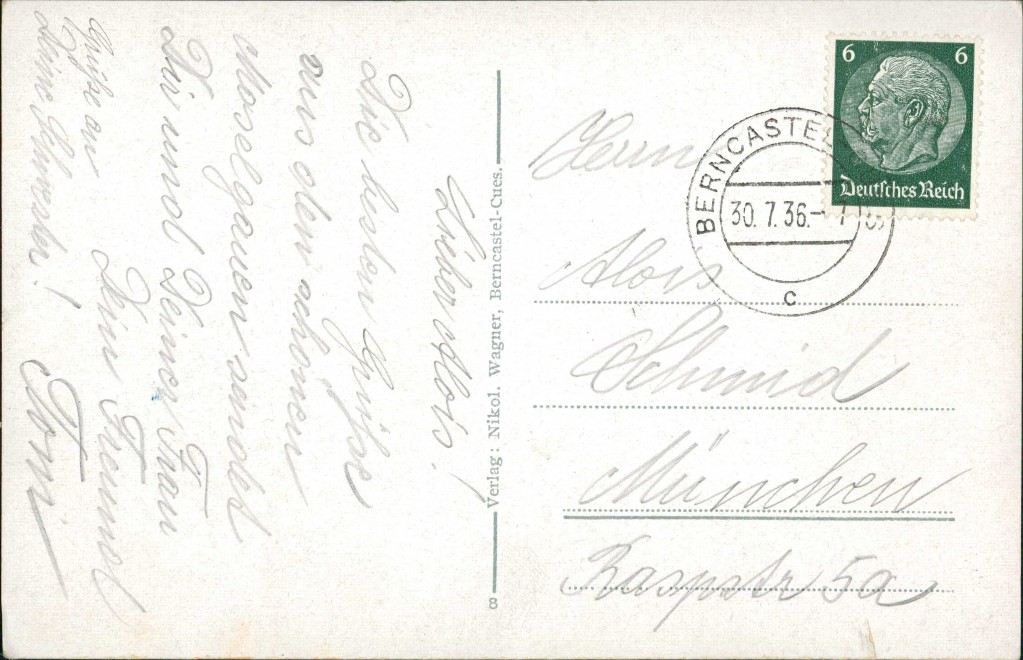 Lieber Alois!
Die besten Grüße
aus dem schönen
Moselgauen sendet
Dir und Deiner Frau
Dein Freund
Toni
Grüße an
Deine Schwester!
Verlag: Nikol. Wagner, Berncastel-Cues.
8
6 6
Deutsches Reich
BERNCASTEL
30.7.36.- 7
c
Herrn
Alois
Schmid
München
Raspstr 5a